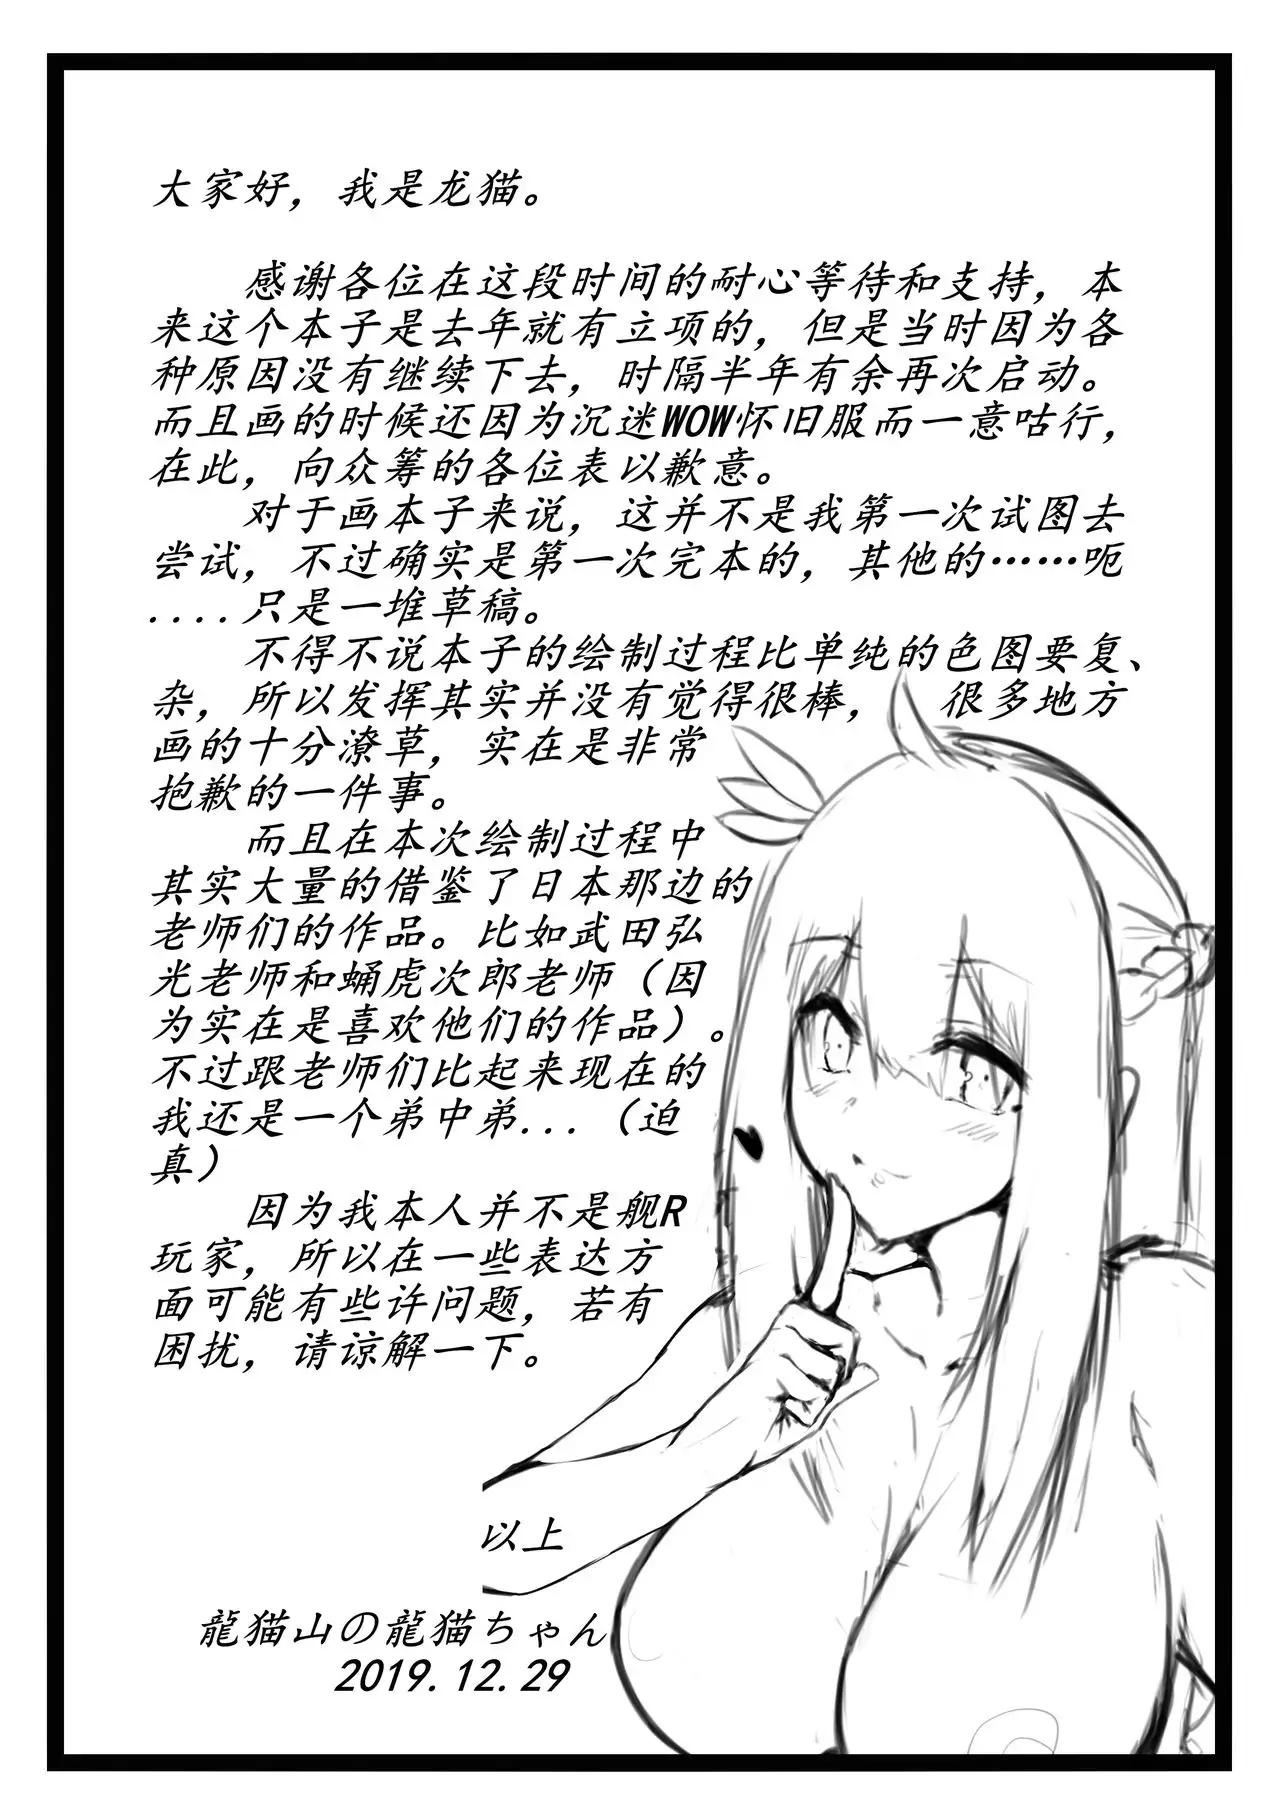 大家好，我是龙猫。
感谢各位在这段时间的耐心等待和支持，本
来这个本子是去年就有立项的，但是当时因为各
种原因没有继续下去，时隔半年有余再次启动。
而且画的时候还因为沉迷WOW怀旧服而一意咕行，
在此，向众筹的各位表以歉意。
对于画本子来说，这并不是我第一次试图去
尝试，不过确实是第一次完本的，其他的……呃
....只是一堆草稿。
不得不说本子的绘制过程比单纯的色图要复、
杂，所以发挥其实并没有觉得很棒， 很多地方
画的十分潦草，实在是非常
抱歉的一件事。
而且在本次绘制过程中
其实大量的借鉴了日本那边的
老师们的作品。比如武田弘
光老师和蛹虎次郎老师（因
为实在是喜欢他们的作品）。
不过跟老师们比起来现在的
我还是一个弟中弟...（迫
真）
因为我本人并不是舰R
玩家，所以在一些表达方
面可能有些许问题，若有
困扰，请谅解一下。
以上
龍猫山の龍猫ちゃん
2019.12.29